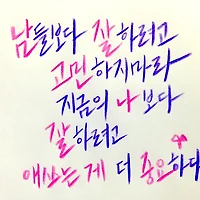 남들보다 잘하려고
고민하지마라
지금의 나보다
잘하려고
애쓰는게 더 중요하다